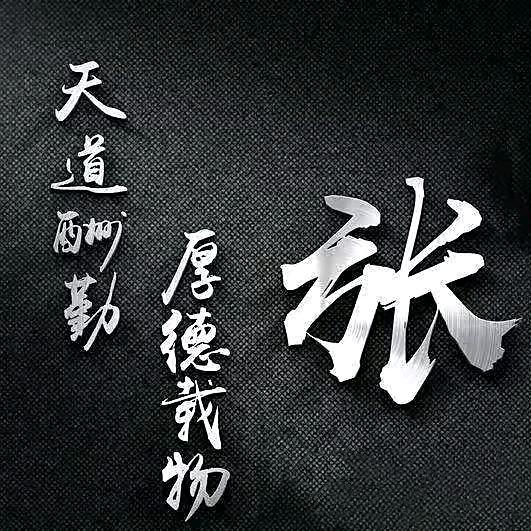 张
天道酬勤
厚德载物